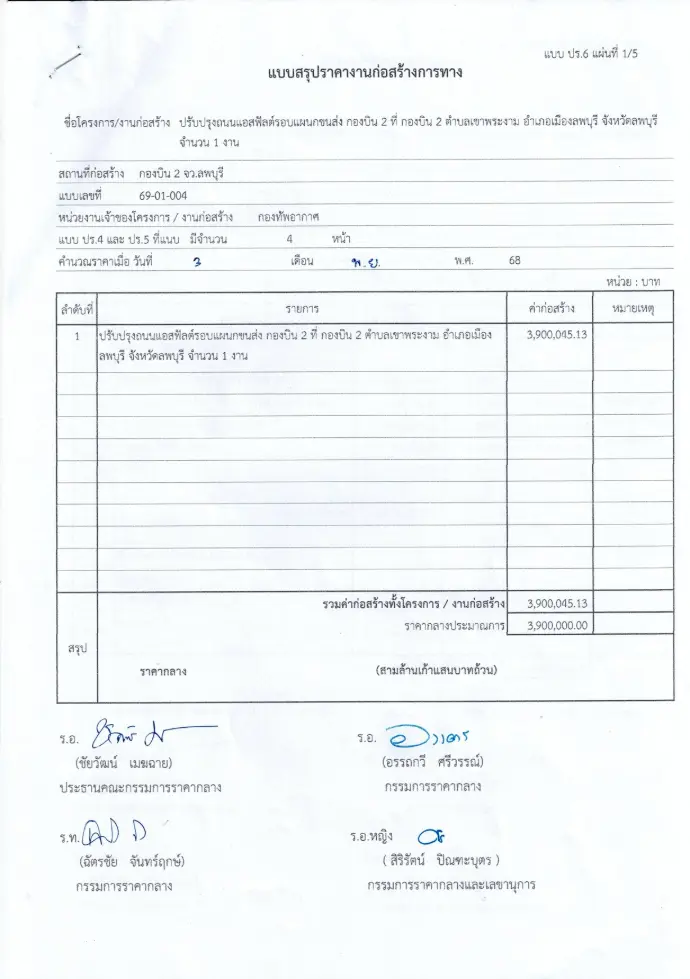 แบบ ปร.6 แผ่นที่ 1/5
แบบสรุปราคางานก่อสร้างการทาง
ชื่อโครงการ/งานก่อสร้าง ปรับปรุงถนนแอสฟัลต์รอบแผนกขนส่ง กองบิน 2 ที่ กองบิน 2 ตำบลเขาพระงาม อำเภอเมืองลพบุรี จังหวัดลพบุรี
จำนวน 1 งาน
สถานที่ก่อสร้าง กองบิน 2 จว.ลพบุรี
แบบเลขที่ 69-01-004
หน่วยงานเจ้าของโครงการ / งานก่อสร้าง กองทัพอากาศ
แบบ ปร.4 และ ปร.5 ที่แนบ มีจำนวน 4 หน้า
คำนวณราคาเมื่อ วันที่ 3 เดือน พ.ย. พ.ศ. 68
หน่วย : บาท
ลำดับที่ รายการ ค่าก่อสร้าง หมายเหตุ
1 ปรับปรุงถนนแอสฟัลต์รอบแผนกขนส่ง กองบิน 2 ที่ กองบิน 2 ตำบลเขาพระงาม อำเภอเมือง 3,900,045.13
ลพบุรี จังหวัดลพบุรี จำนวน 1 งาน
รวมค่าก่อสร้างทั้งโครงการ / งานก่อสร้าง 3,900,045.13
ราคากลางประมาณการ 3,900,000.00
สรุป
ราคากลาง (สามล้านเก้าแสนบาทถ้วน)
ร.อ. ร.อ.
(ชัยวัฒน์ เมฆฉาย) (อรรถกวี ศรีวรรณ์)
ประธานคณะกรรมการราคากลาง กรรมการราคากลาง
ร.ท. ร.อ.หญิง
(ฉัตรชัย จันทร์ฤกษ์) ( สิริรัตน์ ปิณฑะบุตร )
กรรมการราคากลาง กรรมการราคากลางและเลขานุการ